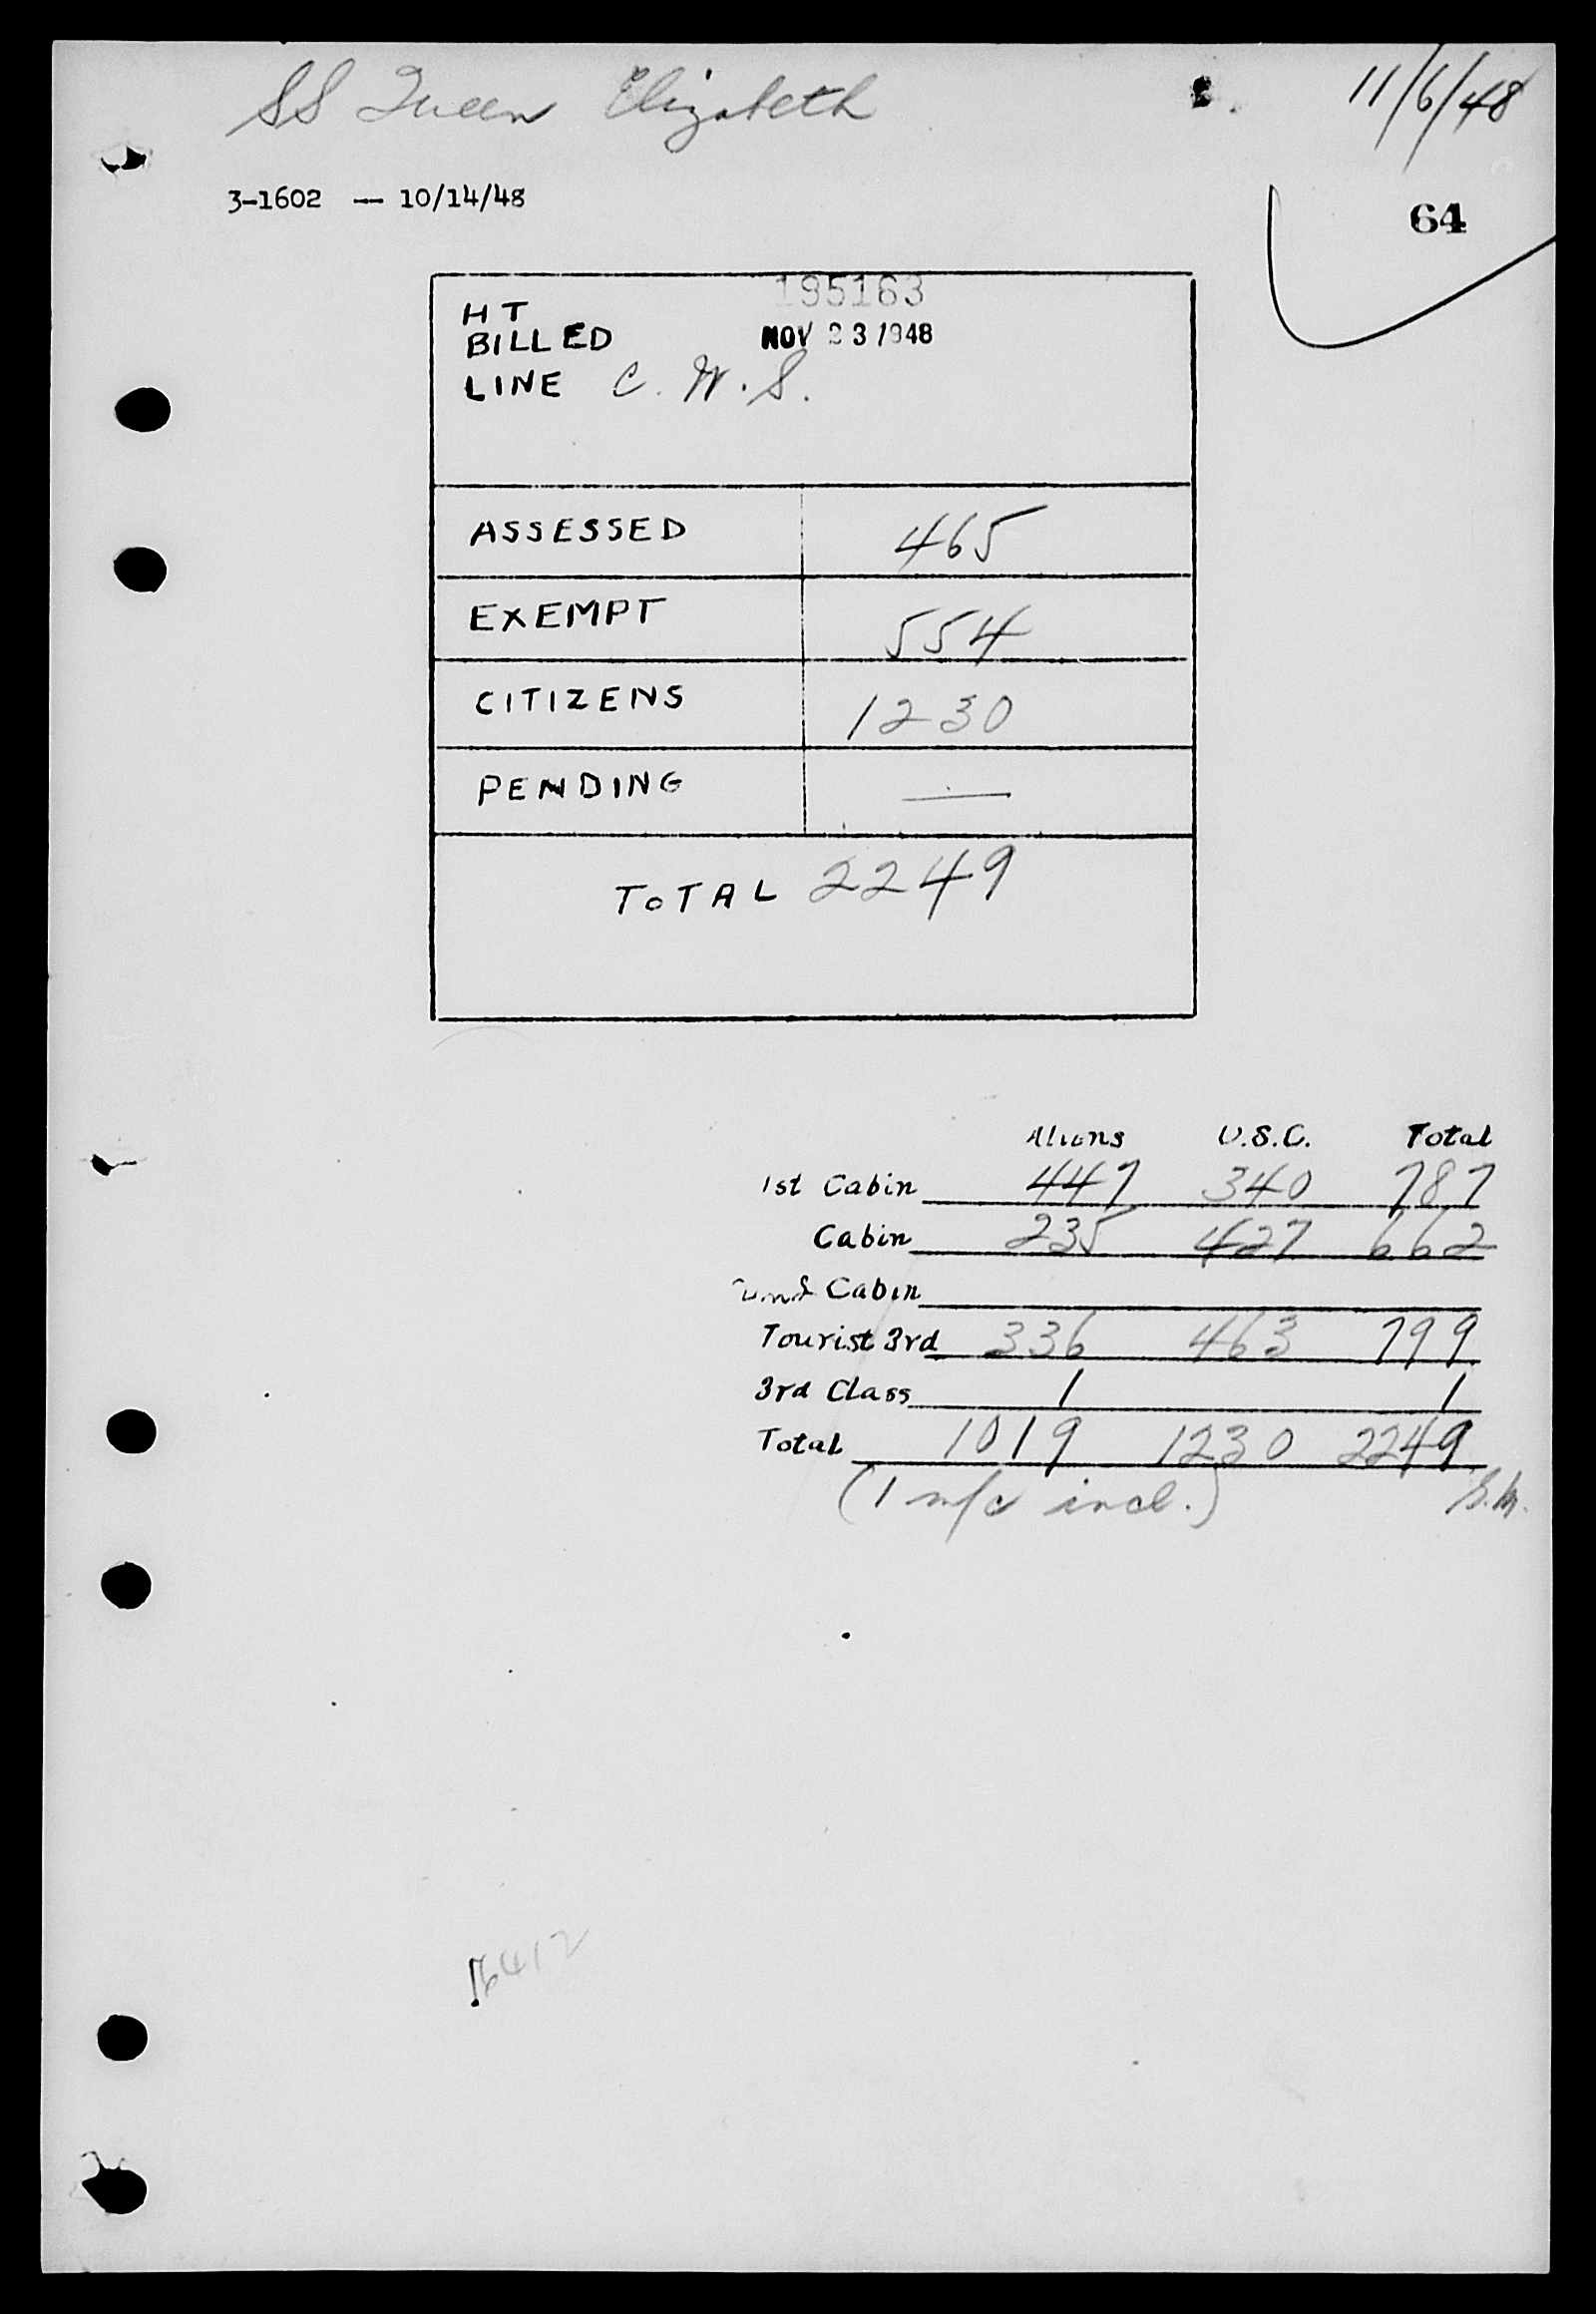 SS Queen Elizabeth 11/6/48
3-1602 — 10/14/48
64
195163
HT
BILLED NOV 23 1948
LINE C. W. S.
ASSESSED 465
EXEMPT 554
CITIZENS 1230
PENDING —
TOTAL 2249
Aliens U.S.C. Total
1st Cabin 447 340 787
Cabin 235 427 662
Cabin
Tourist 3rd 336 463 799
3rd Class 1 1
Total 1019 1230 2249
(1 incl.)